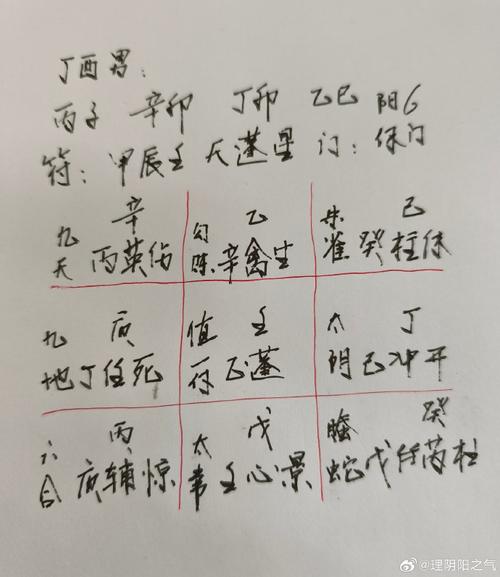 丁酉男：
丙子 辛卯 丁卯 乙巳 阴6
符：甲辰壬 天蓬星 门：休门
九天 辛 丙英伤
勾陈 乙 辛禽生
朱雀 己 癸柱休
九地 庚 丁任死
值符 壬 乙蓬
太阴 丁 己冲开
六合 丙 庚辅惊
太常 戊 壬心景
螣蛇 癸 戊芮杜
@理阴阳之气